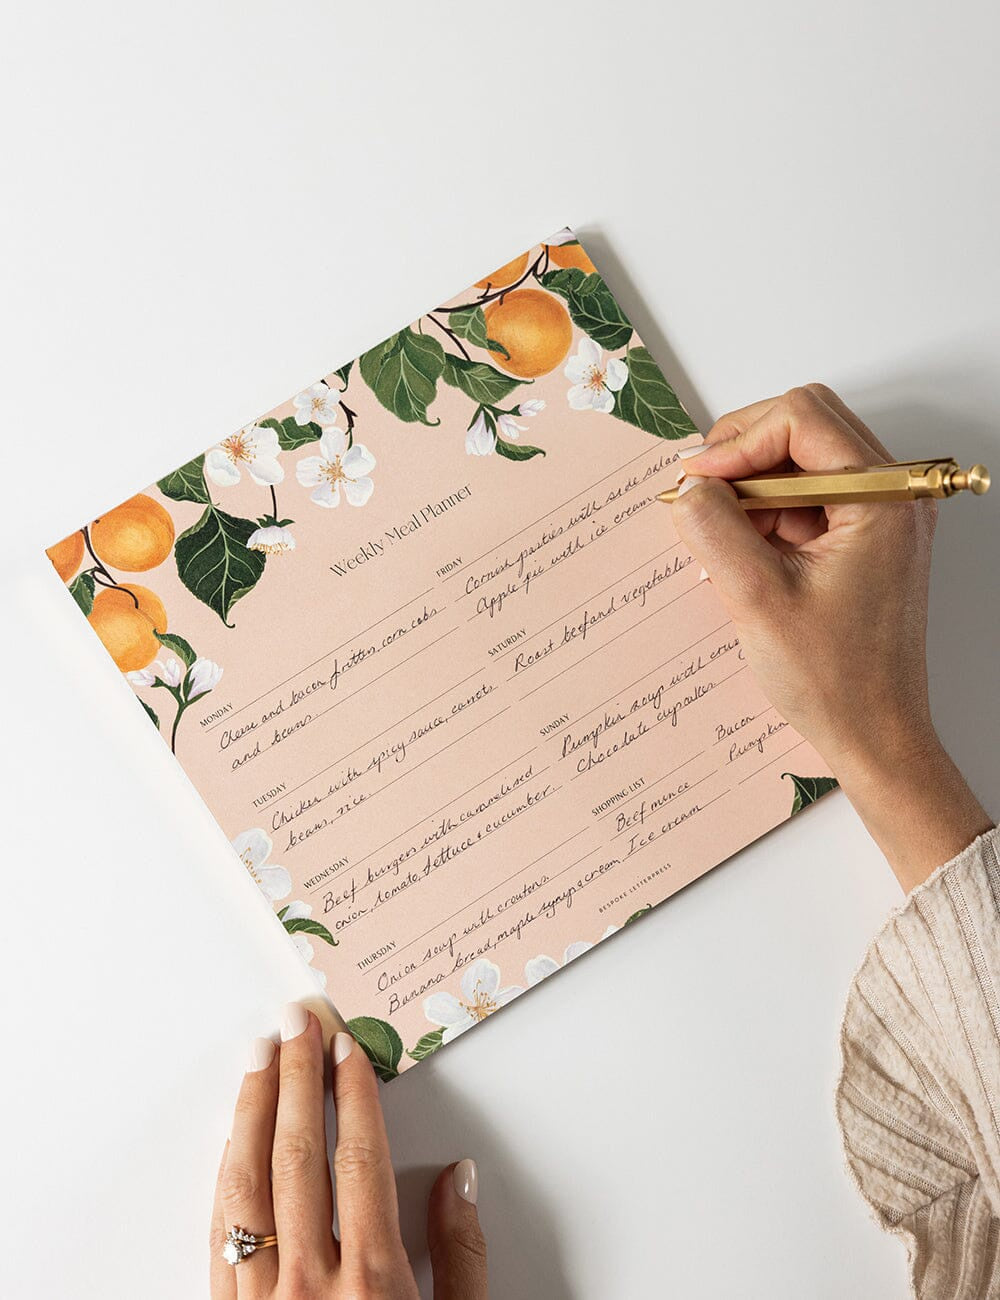 Weekly Meal Planner
MONDAY
Cheese and bacon fritters corn cobs
and beans.
TUESDAY
Chicken with spicy sauce, carrots
beans, rice.
WEDNESDAY
Beef burgers with caramelised
onion, tomato, lettuce & cucumber.
THURSDAY
Onion soup with croutons.
Banana bread, maple syrup & cream,
FRIDAY
Cornish pasties with side salad
Apple pie with ice cream
SATURDAY
Roast beef and vegetables
SUNDAY
Pumpkin soup with
Chocolate cupcakes.
SHOPPING LIST
Beef mince
Ice cream
Bacon
Pumpkin
BESPOKE LETTERPRESS